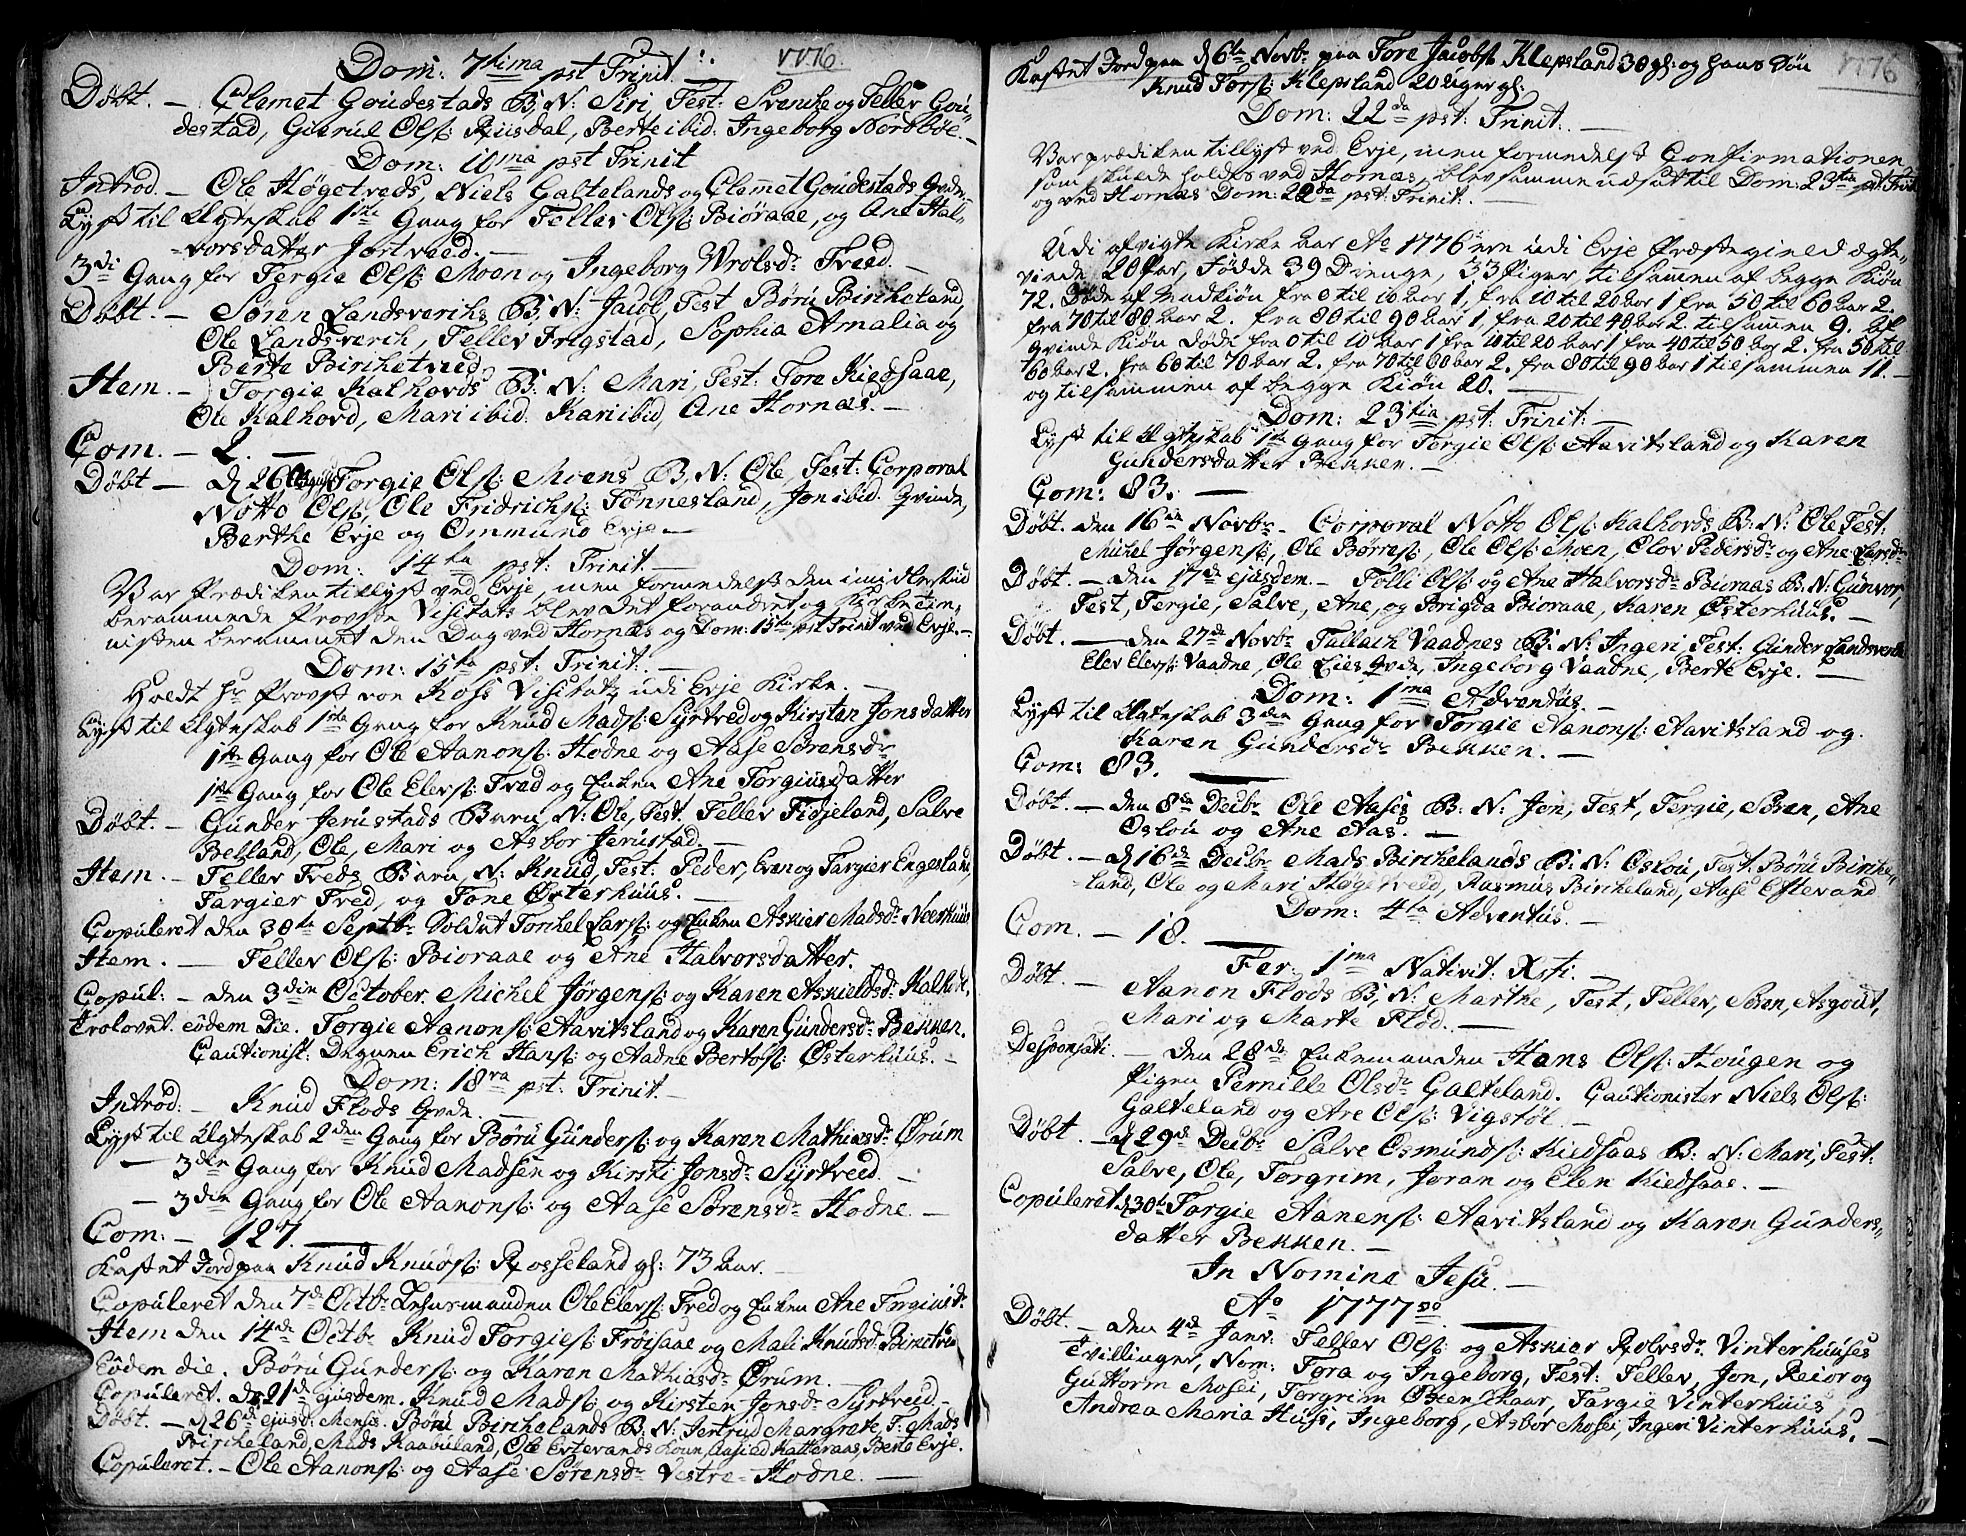 Dom: 7tima pst Trinit: 1776.
Døbt. – Clemet Goudestads B. N: Siri, Test: Svenke og Tellev Gou-
destad, Giurul Ols: Riisdal, Berte ibid. Ingeborg Nordbøe. –
Dom: 10ma pst Trinit
Introd. – Ole Høgetveds, Niels Galtelands og Clemet Goudestads Qvde. –
Lyst til Ægteskab 1ste Gang for Tellev Ols: Biøraae, og Ane Hal-
vorsdatter Jortveed. –
3di Gang for Tergie Ols: Moen og Ingeborg Wrolsdr Tveed. –
Døbt. – Søren Landsverks B. N: Jacob, Test Børu Birkeland,
Ole Landsverk, Tellev Frigstad, Sophia Amalia og
Berte Birketveed.
Item. – Torgie Kalhovds B. N: Mari, Test: Tore Kiedsaae,
Ole Kalhovd, Mari ibid. Kari ibid, Ane Hornæs. –
Com. – 2. –
Døbt – d 26 Torgie Ols: Moens B. N: Ole, Test: Corporal
Notto Ols, Ole Fridrichs: Tønnesland, Jon ibid. Qvinde,
Berthe Evje og Ommund Evje –
Dom: 14ta pst: Trinit. –
Var Prædiken tillyst ved Evje, men formedelst den imidlertiid
berammede Provste Visitats blev det forandret og Kirke tien-
nisten berammet den Dag ved Hornæs og Dom: 15ta pst Trinit ved Evje. –
Dom: 15ta pst: Trinit. –
Holdt Hr Provst von Koss Visitatz udi Evje Kirke. –
Lyst til Ægteskab 1sta Gang for Knud Mads: Syrtved og Kirsten Jonsdatter
1ste Gang for Ole Aanons: Hodne og Aase Sørensdr
1ste Gang for Ole Elevs: Tved og Enken Ane Torgiusdatter
Døbt. – Gunder Jerustads Barn N: Ole, Test. Tellev Fidjeland, Salve
Belland, Ole, Mari og Asbor Jerustad. –
Item. – Tellev Treds Barn, N: Knud, Test: Peder, Even og Targier Engesland,
Targier Tred, og Tone Østerhuus. –
Copuleret den 30te Septbr Soldat Torkel Lars: og Enken Askier Madsdr Neerhuus
Item. – Tellev Ols: Bioraae og Ane Halvorsdatter.
Copul: – den 3die October. Michel Jørgens: og Karen Askieldsdr Kalhovd,
Trolovet. eodem Die. Torgie Aanons: Aavitsland og Karen Gundersdr Bekken.
Cautionist: Degnen Erich Hans: og Aadne Bertos: Østerhuus. –
Dom: 18ra pst: Trinit. –
Introd: – Knud Flods Qvde. –
Lyst til Ægteskab 2den Gang for Børu Gunders: og Karen Mathiasdr Ørum
– 3die Gang for Knud Madsen og Kirsti Jonsdr Syrtveed. –
– 3die Gang for Ole Aanons: og Aase Sørensdr Hodne. –
Com: – 127. –
Kastet Jord paa Knud Knuds: Rosseland gl: 73 aar. –
Copuleret den 7de Octbr Lensmanden Ole Elevs: Tred og Enken Ane Torgiusdr
Item den 14de Octbr Knud Torgies: Frøisaae og Mali Knudsdr
Eodem die. Børu Gunders: og Karen Mathiasdr Ørum. –
Copuleret. d 21de ejusdem. Knud Mads: og Kirsten Jonsdr Syrtveed –
Døbt. – d 26de ejusd: Mensis. Børu Birkelands B. N: Jertrud Margrete, T. Mads
Birkeland, Mads Kaabuland, Ole Evtevands Koun, Aase ibd Katteraas, Berte Evje.
Copuleret. – Ole Aanons: og Aase Sørensdr Vestre-Hodne. –
Kastet Jord paa d 6te Novbr paa Tore Jacobs: Klepsland 30 gl: og hans Søn 1776
Knud Tors: Klepsland 20 Uger gl:
Dom: 22da pst: Trinit. –
Var prædiken tillyst ved Evje, men formedelst Confirmationen
som skulde holdes ved Hornæs, blev samme udsat til Dom: 23tia pst Trinit
og ved Hornæs Dom: 22da pst: Trinit. –
Udi afvigte Kirke Aar Ao 1776 ere udi Evje Præstegield ægte-
viede 20 Par, Fødde 39 Drenge, 33 Piger tilsammen af begge Kiøn
72. Døde af Mandkiøn fra 0 til 10 aar 1, fra 10 til 20 aar 1 fra 50 til 60 aar 2.
fra 70 til 80 aar 2. fra 80 til 90 aar 1, fra 20 til 40 aar 2. tilsammen 9. Af
Qvinde Kiøn Døde fra 0 til 10 aar 1 fra 10 til 20 aar 1 fra 40 til 50 aar 2. fra 50 til
60 aar 2. fra 60 til 70 aar 2. fra 70 til 80 aar 2. fra 80 til 90 aar 1 tilsammen 11. –
og tilsammen af begge Kiøn 20. –
Dom: 23tia pst: Trinit: –
Lyst til Ægteskab 1ste Gang for Tergie Ols: Aavitsland og Karen
Gundersdatter Bekken. –
Com: 83. –
Døbt. den 16de Novbr – Corporal Notto Ols: Kalhovds B. N: Ole Test:
Michel Jørgens:, Ole Børres:, Ole Ols: Moen, Olov Pedersdr og Ane Larsdr
Døbt. – den 17de ejusdem. – Folli Ols: og Ane Halvorsdr Bioraas B. N: Gunvor,
Test, Tergie, Salve, Ane, og Brigda Bioraae, Karen Østerhuus. –
Døbt. – den 27de Novbr Tallach Vaadnes B. N: Ingeri, Test: Gunder Landsverk
Elev Elevs: Vaadne, Ole Lies Qvde, Ingeborg Vaadne, Berte Evje. –
Dom: 1ma Adventus. –
Lyst til Ægteskab 3die Gang for Torgie Aanons: Aavitsland og
Karen Gundersdr Bekken. –
Com: 83. –
Døbt. – den 8de Decbr Ole Aases B. N: Jon, Test, Tergie, Søren, Ane
Oslou og Ane Aas. –
Døbt. – d 16de Decbr Mads Birkelands B. N: Oslou, Test. Børu Birke-
land, Ole og Mari Høgetveed, Rasmus Birkeland, Aase Eftevand
Dom: 4ta Adventus. –
Com. – 18. –
Fer. 1ma Nativit: Xsti. –
Døbt. – Aanon Flods B. N: Marthe, Test, Tellev, Søren, Asgout,
Mari og Marte Flod. –
Desponsati. – den 28de Enkemanden Hans Ols: Hougen og
Pigen Pernille Olsdr Galteland. Cautionister Niels Ols:
Galteland og Are Ols: Vigstøl. –
Døbt. – d 29de Decbr Salve Osmunds: Kiedsaas B. N: Mari, Test:
Salve, Ole, Torgrim, Joran og Elen Kiedsaae. –
Copuleret d 30te Torgie Aanens: Aavitsland og Karen Gunders-
datter Bekken. –
In Nomine Jesu. –
Ao 1777mo
Døbt. – den 4de Janv: Tellev Ols: og Askier Rolvsdr Vinterhuuses
Tvillinger, Nom: Tora og Ingeborg, Test: Tellev, Jon, Reior og
Guttorm Mosei, Torgrim Østenskaar, Targie Vinterhuus,
Andrea Maria Husi, Ingeborg, Asbor Mosei, Ingeri Vinterhuus. –